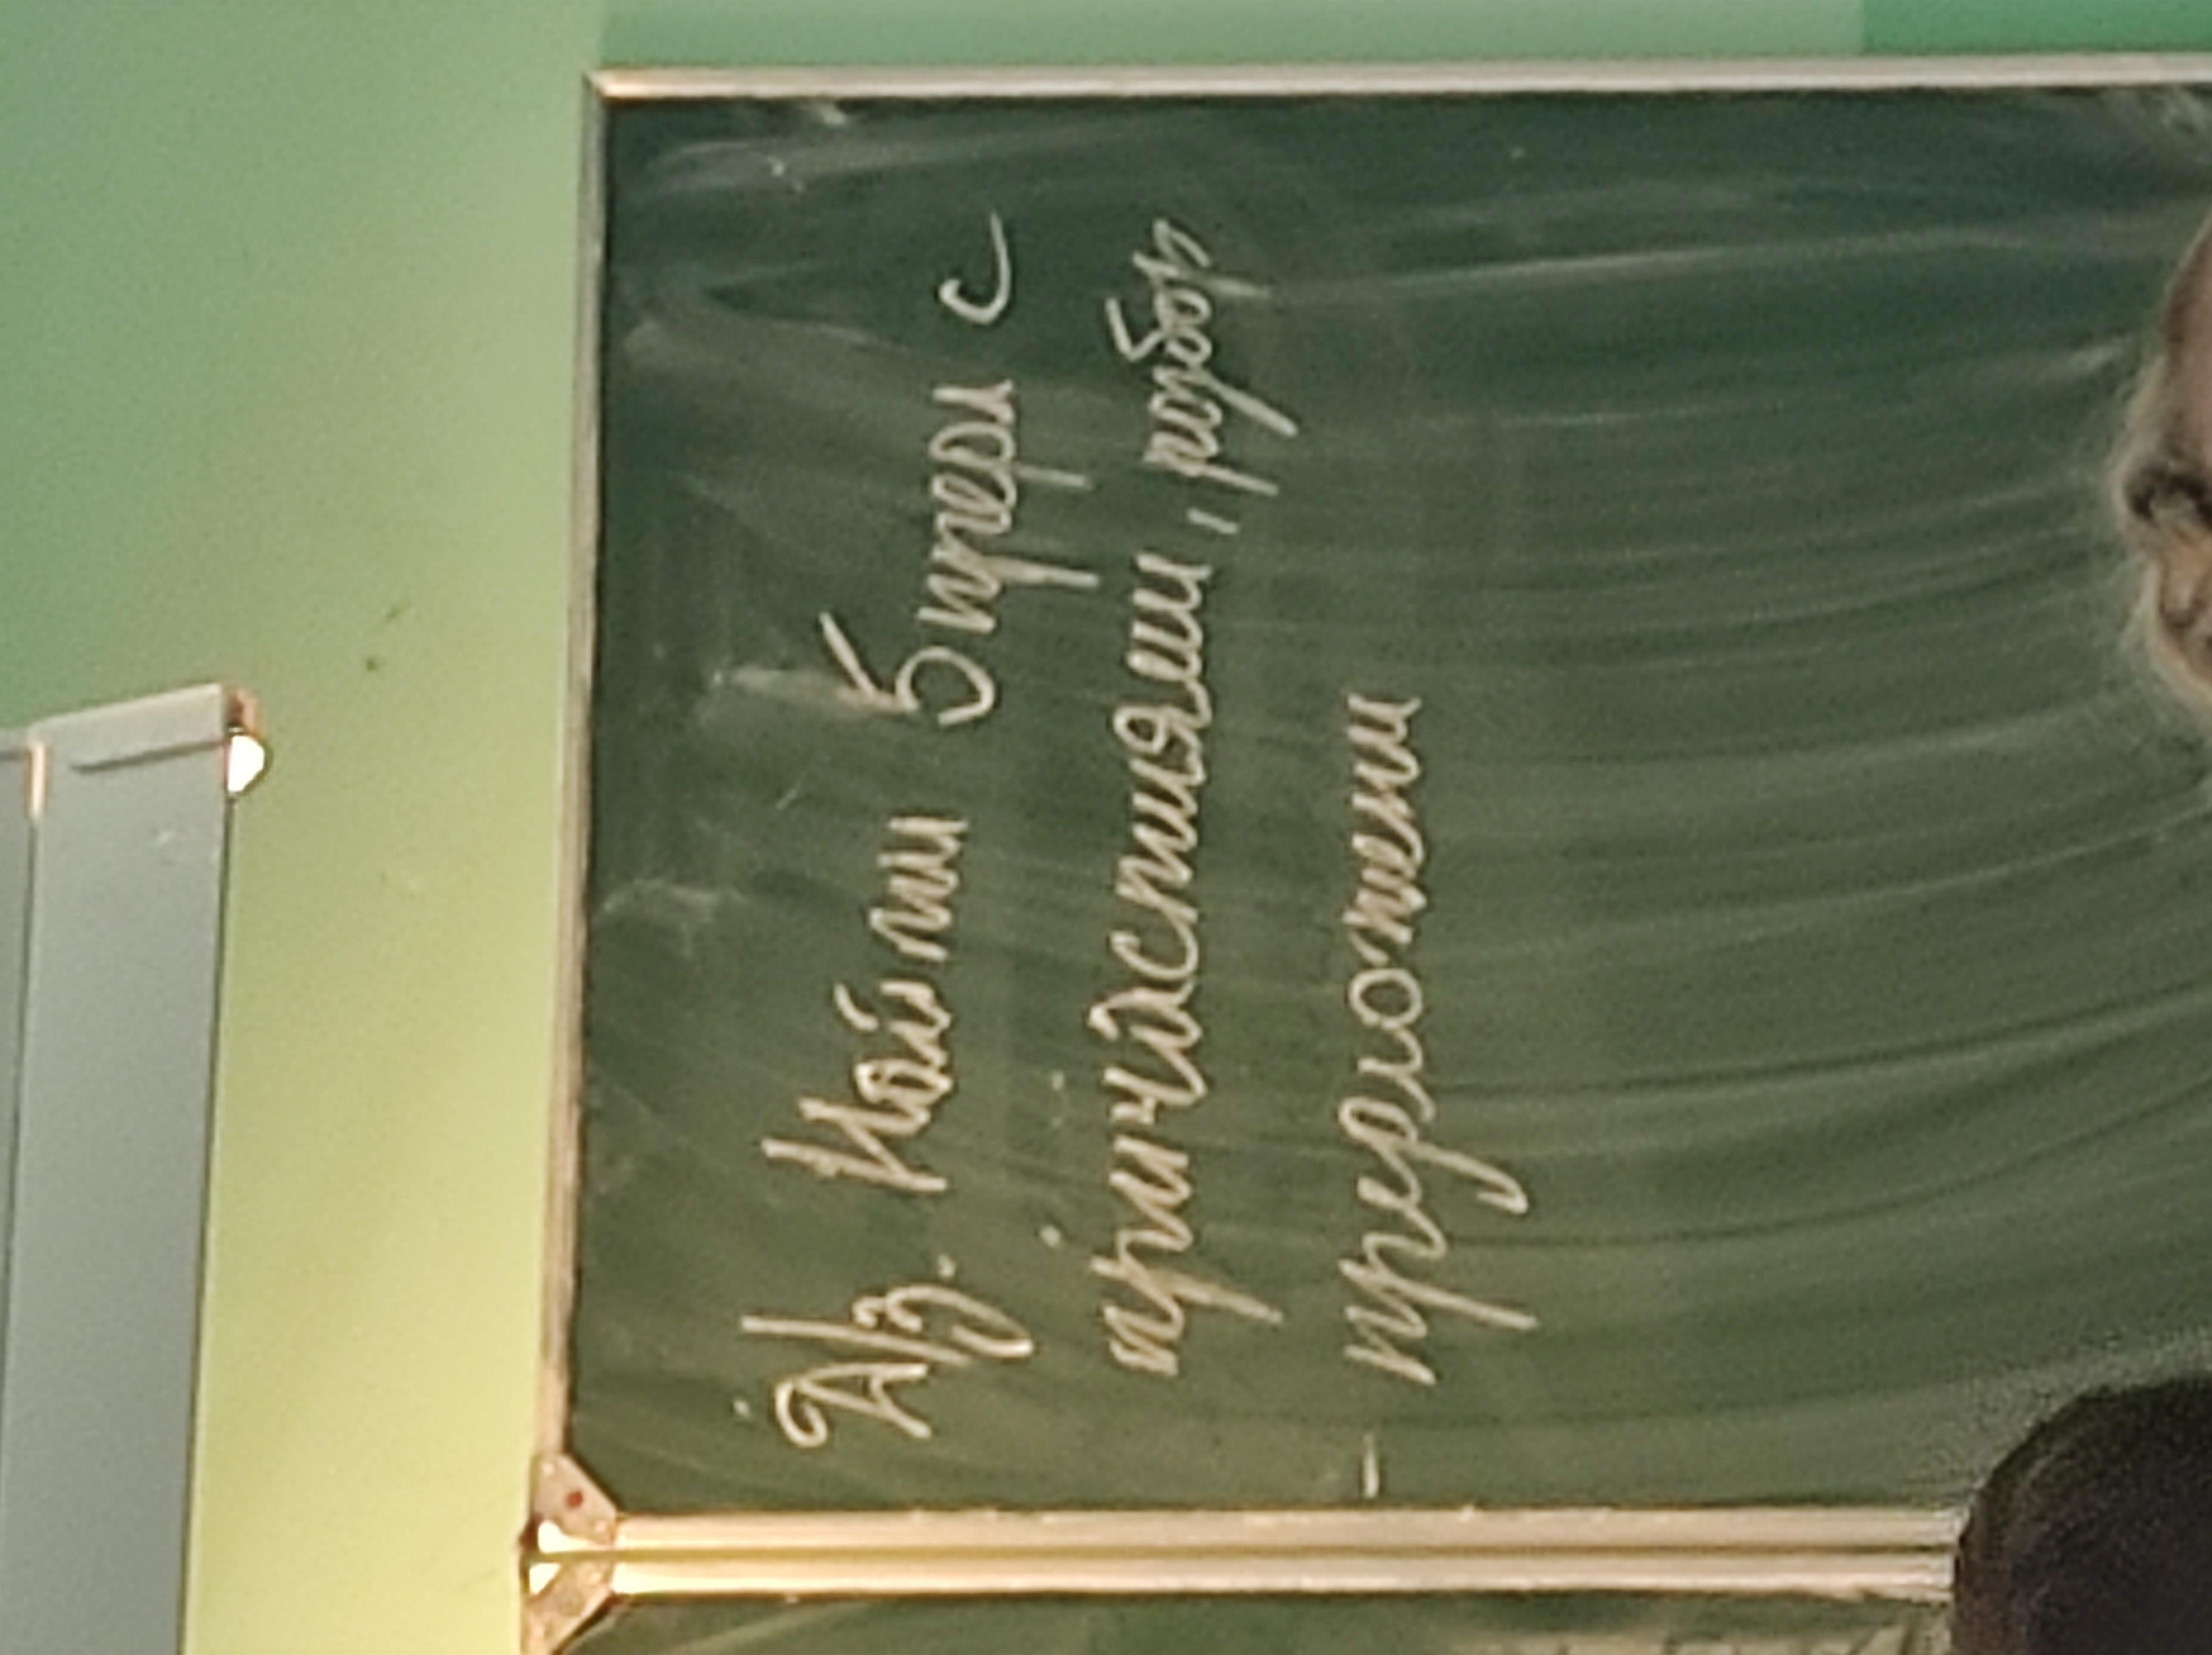 Д/з. Найти 5 предл с
причастиями, разбор
предложени